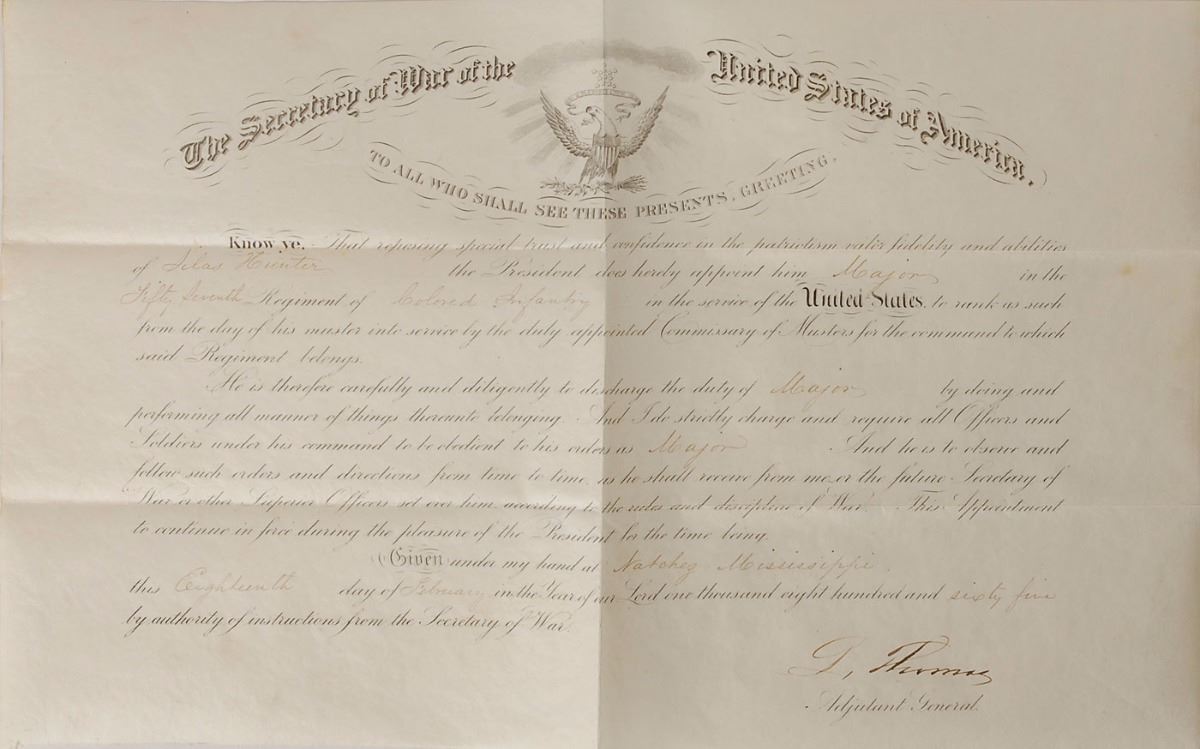 The Secretary of War of the United States of America.
TO ALL WHO SHALL SEE THESE PRESENTS, GREETING,
Know ye, That reposing special trust and confidence in the patriotism valor fidelity and abilities
of Silas Hunter the President does hereby appoint him Major in the
Fifty Seventh Regiment of Colored Infantry in the service of the United States, to rank as such
from the day of his muster into service by the duly appointed Commissary of Musters for the command to which
said Regiment belongs.
He is therefore carefully and diligently to discharge the duty of Major by doing and
performing all manner of things thereunto belonging. And I do strictly charge and require all Officers and
Soldiers under his command to be obedient to his orders as Major And he is to observe and
follow such orders and directions from time to time, as he shall receive from me, or the future Secretary of
War or other Superior Officers set over him, according to the rules and discipline of War. This Appointment
to continue in force during the pleasure of the President for the time being.
Given under my hand at Natchez Mississippi.
this Eighteenth day of February in the Year of our Lord one thousand eight hundred and sixty five
by authority of instructions from the Secretary of War.
L, Thomas
Adjutant General.